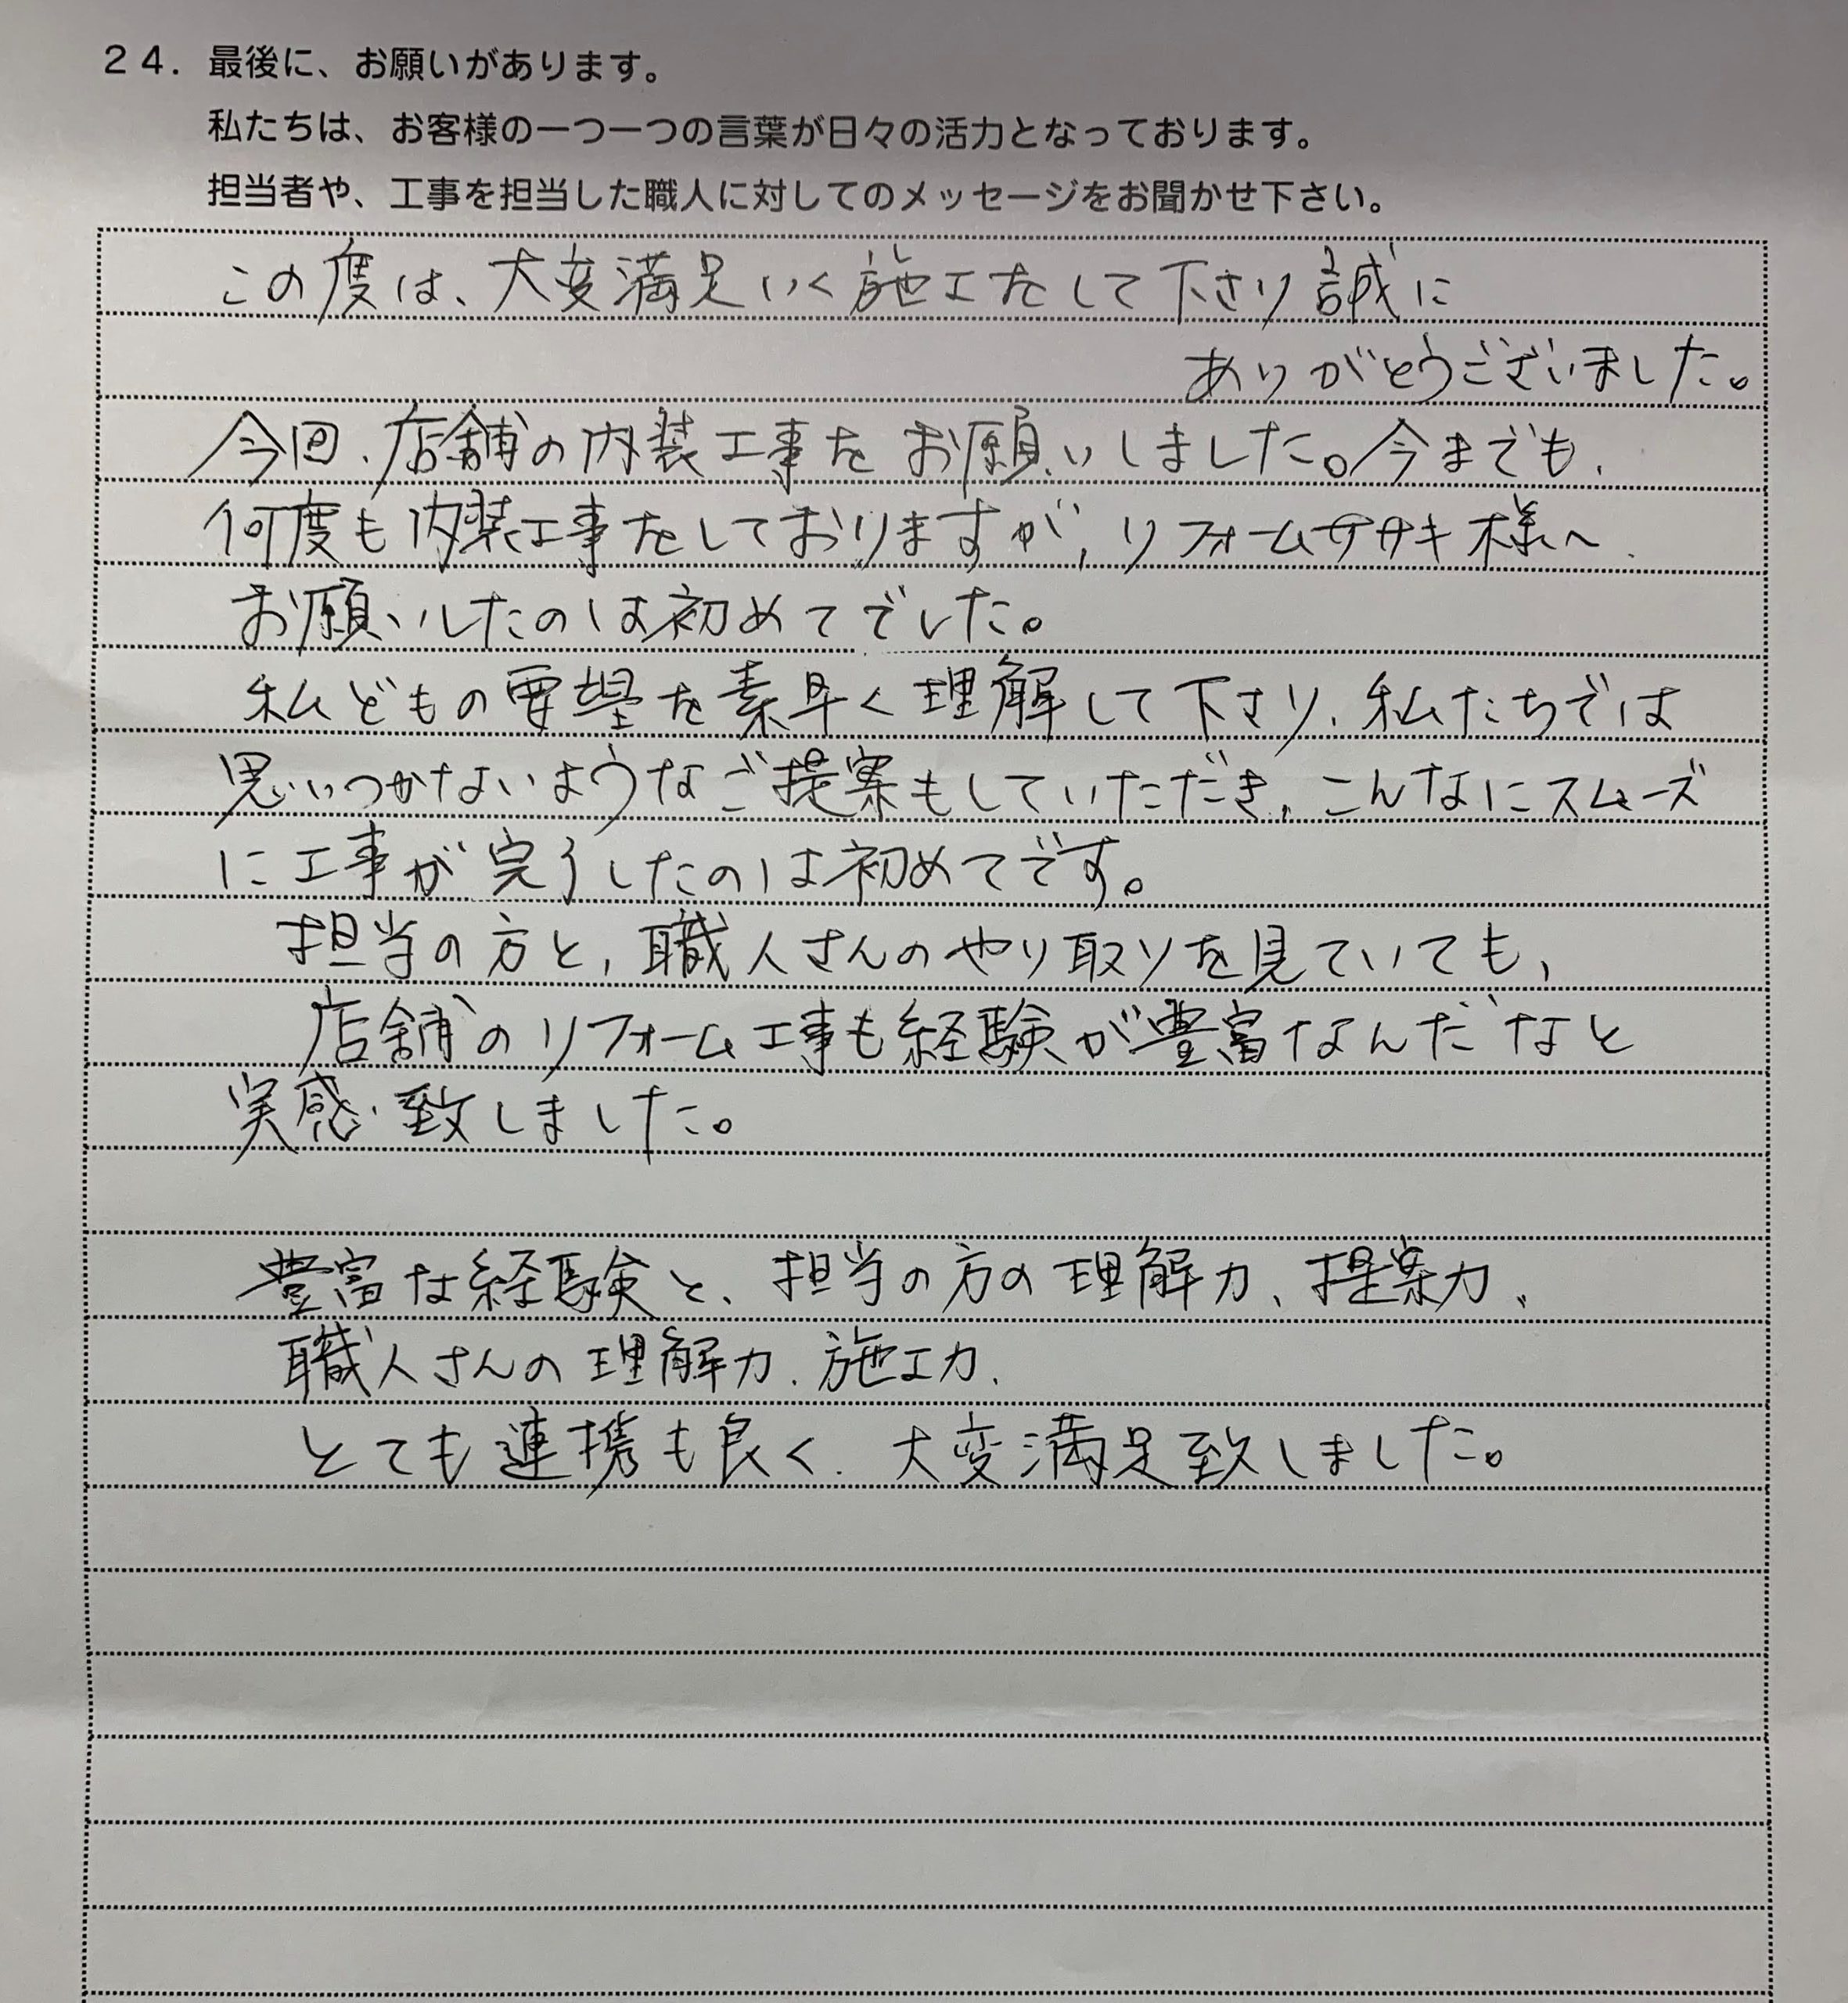 24. 最後に、お願いがあります。
私たちは、お客様の一つ一つの言葉が日々の活力となっております。
担当者や、工事を担当した職人に対してのメッセージをお聞かせ下さい。
この度は、大変満足いく施工をして下さり誠に
ありがとうございました。
今回、店舗の内装工事をお願いしました。今までも、
何度も内装工事をしておりますが、リフォームササキ様へ
お願いしたのは初めてでした。
私どもの要望を素早く理解して下さり、私たちでは
思いつかないようなご提案もしていただき、こんなにスムーズ
に工事が完了したのは初めてです。
担当の方と、職人さんのやり取りを見ていても、
店舗のリフォーム工事も経験が豊富なんだなと
実感致しました。
豊富な経験と、担当の方の理解力、提案力、
職人さんの理解力、施工力、
とても連携も良く、大変満足致しました。